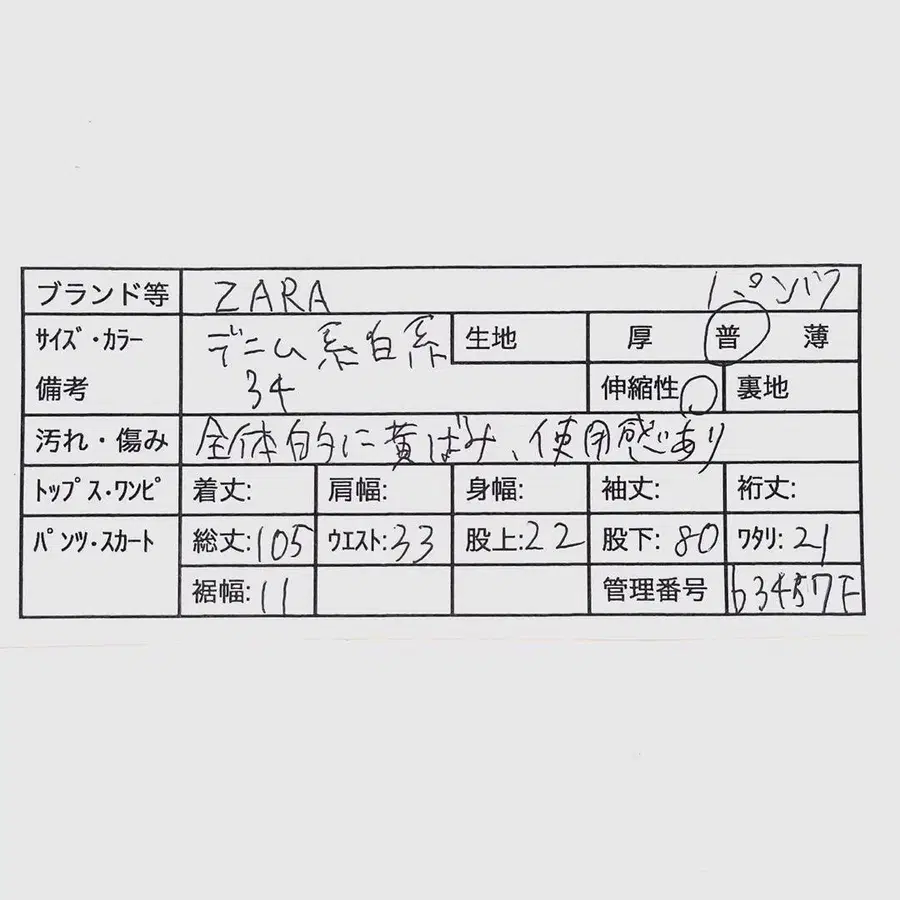 ブランド等 ZARA パンツ
サイズ・カラー デニム系白系 生地 厚 普 薄
備考 34 伸縮性 裏地
汚れ・傷み 全体的に黄ばみ、使用感じあり
トップス・ワンピ 着丈: 肩幅: 身幅: 袖丈: 裄丈:
パンツ・スカート 総丈:105 ウエスト:33 股上:22 股下:80 ワタリ:21
裾幅:11 管理番号 63457F